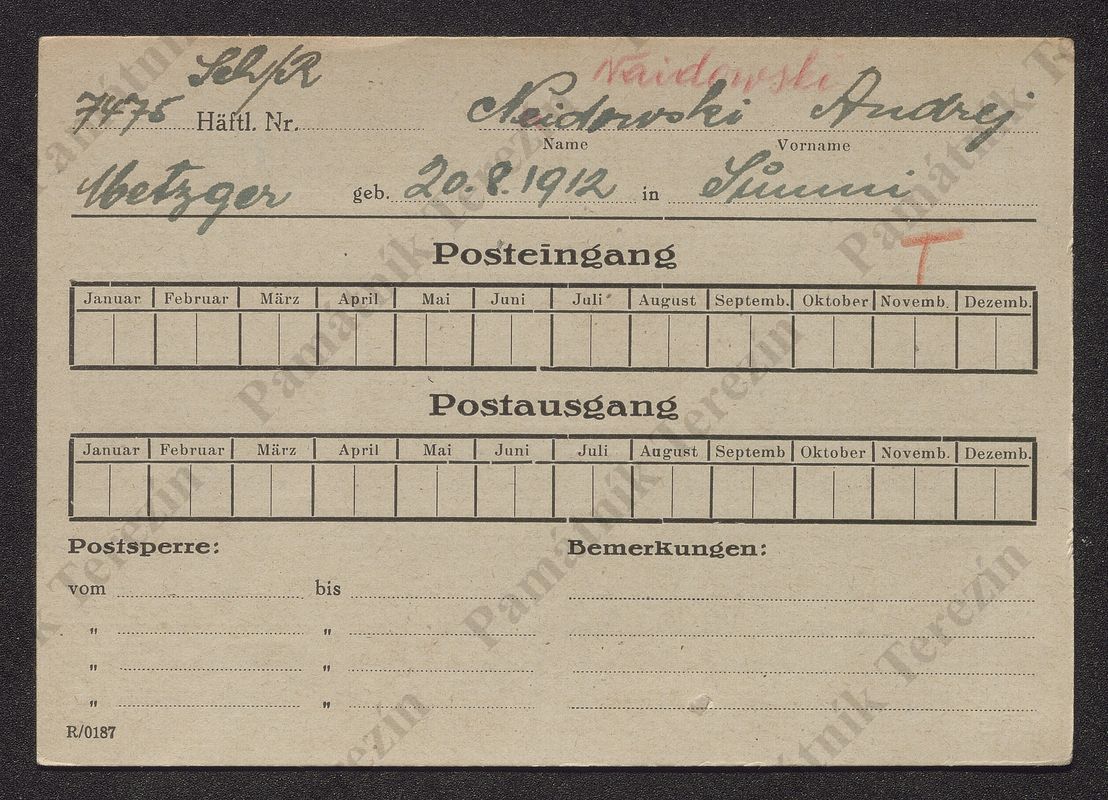 Sch/R Naidowski
7475 Häftl. Nr. Neidowski Andrej
Name Vorname
Metzger geb. 20.8.1912 in Sŭmmi
Posteingang T
Januar Februar März April Mai Juni Juli August Septemb. Oktober Novemb. Dezemb.
Postausgang
Januar Februar März April Mai Juni Juli August Septemb Oktober Novemb. Dezemb.
Postsperre: Bemerkungen:
vom bis
" "
" "
" "
R/0187
Památník Terezín